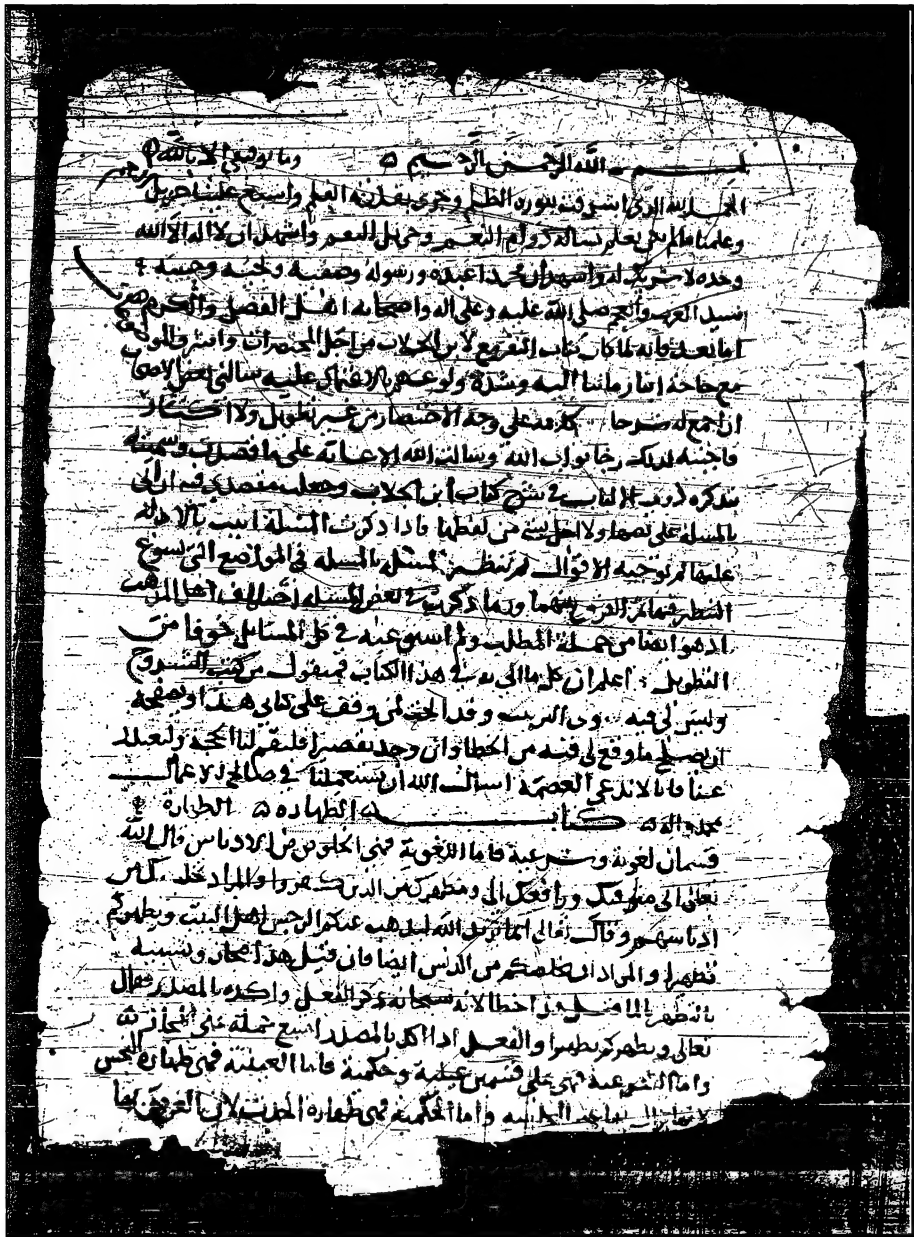 بسم الله الرحمن الرحيم وما توفيقي إلا بالله
الحمد لله الذي اشرقت بنوره الظلم وجرى بقدرته القلم واسبغ علينا جزيل
وعلمنا ما لم نكن نعلم نساله دوام النعم واشهد ان لا اله الا الله
وحده لا شريك له واشهد ان محمدا عبده ورسوله وصفيه وحبيبه
سيد العرب والعجم صلى الله عليه وعلى اله واصحابه اهل الفضل والكرم
اما بعد فانه لما كان كتاب التفريع لابن الجلاب من اجل المختصرات
مع حاجة ابنا زماننا اليه وشدة ولوعهم بالاعتماد عليه سالني بعض
ان اجمع له شرحا على وجه الاختصار من غير تطويل ولا اكثار
فاجبته لذلك رجا ثواب الله وسالت الله الاعانة على ما قصدت وسميته
تذكرة الالباب في شرح كتاب ابن الجلاب وجعلت مقصدي فيه ان اتي
بالمسلة على نصها ولا اخل بشي من لفظها فاذا ذكرت المسلة اتيت بالادلة
عليها ثم توجيه الاقوال ثم تنظير المسلة بالمسلة في المواضع التي يسوغ
النظر فيها ثم الفرق بينهما وربما ذكرت في بعض المسايل اختلاف اهل المذهب
اذ هو ايضا من جملة المطلب ولم استوعبه في كل المسايل خوفا من
التطويل اعلم ان كل ما اتي به في هذا الكتاب فمنقول من كتب الشروح
وليس لي فيه الترتيب وقد لمن وقف على كتابي هذا وتصفحه
ان يصلح ما وقع لي فيه من الخطا وان وجد تقصيرا فليقم لنا الحجة وليعتذر
عنا فانا لا ندعي العصمة اسال الله ان يستعملنا في صالح الاعمال
بمحمد واله كتاب الطهارة الطهارة
قسمان لغوية وشرعية فاما اللغوية فهي الخلوص من الادناس قال الله
تعالى اني متوفيك ورافعك الي ومطهرك من الذين كفروا والمراد من
ادناسهم وقال تعالى انما يريد الله ليذهب عنكم الرجس اهل البيت ويطهركم
تطهيرا والمراد ان يخلصكم من الدنس ايضا فان قيل هذا مجاز
بالتطهر بالما خطا لانه سبحانه ذكر الفعل واكده بالمصدر فقال
تعالى ويطهركم تطهيرا والفعل اذا اكد بالمصدر امتنع حمله على المجاز
واما الشرعية فهي على قسمين عينية وحكمية فاما العينية فهي طهارة النجس
واما الحكمية فهي طهارة الحدث لان